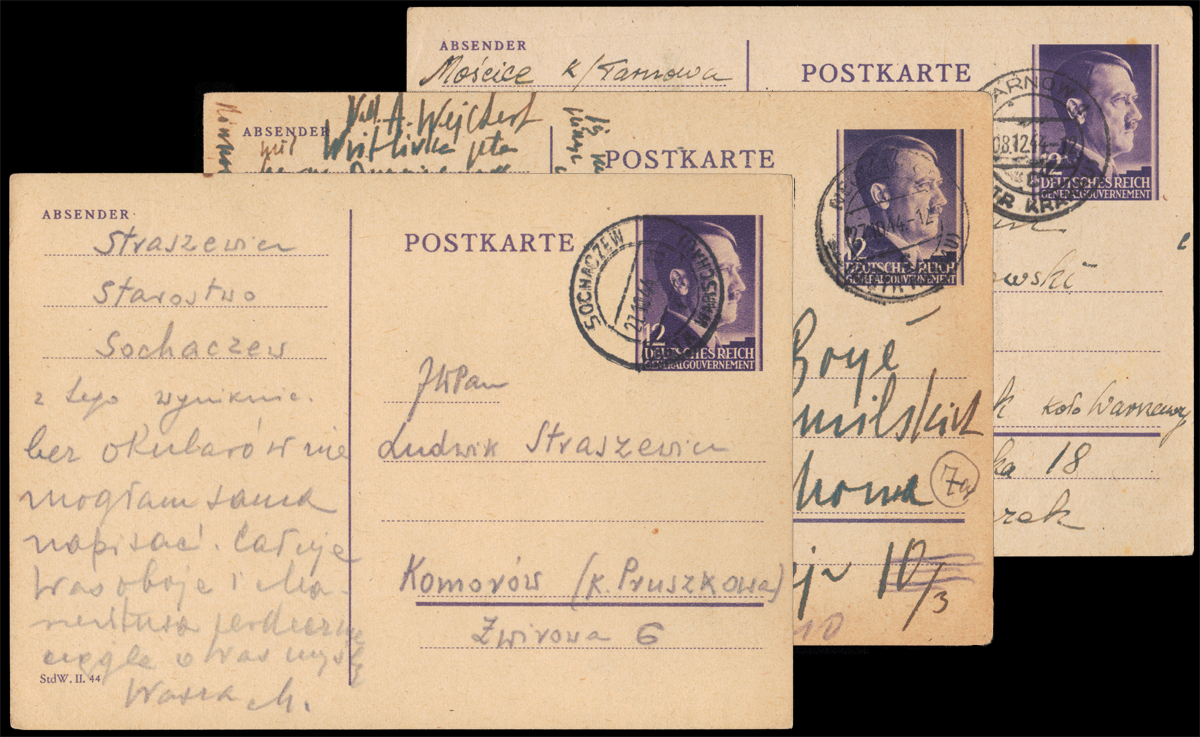 ABSENDER
Mościce k/Tarnowa
POSTKARTE
TARNÓW
08.12.44-12
DISTR KRAK
12
DEUTSCHES REICH
GENERALGOUVERNEMENT
owski
koło Warszawy
ka 18
ABSENDER
A. Wejchert
POSTKARTE
27.10.44-12
12
DEUTSCHES REICH
GENERALGOUVERNEMENT
10/3
ABSENDER
Straszewicz
Starostwo
Sochaczew
z tego wyniknie.
bez okularów nie
mogłam sama
napisać. Całuję
Was oboje i Ma-
serdecznie
ciągle o Was myślę
Wasza M.
StdW. II. 44
POSTKARTE
SOCHACZEW
27.10.44
12
DEUTSCHES REICH
GENERALGOUVERNEMENT
JWPan
Ludwik Straszewicz
Komorów (k. Pruszkowa)
Żwirowa 6